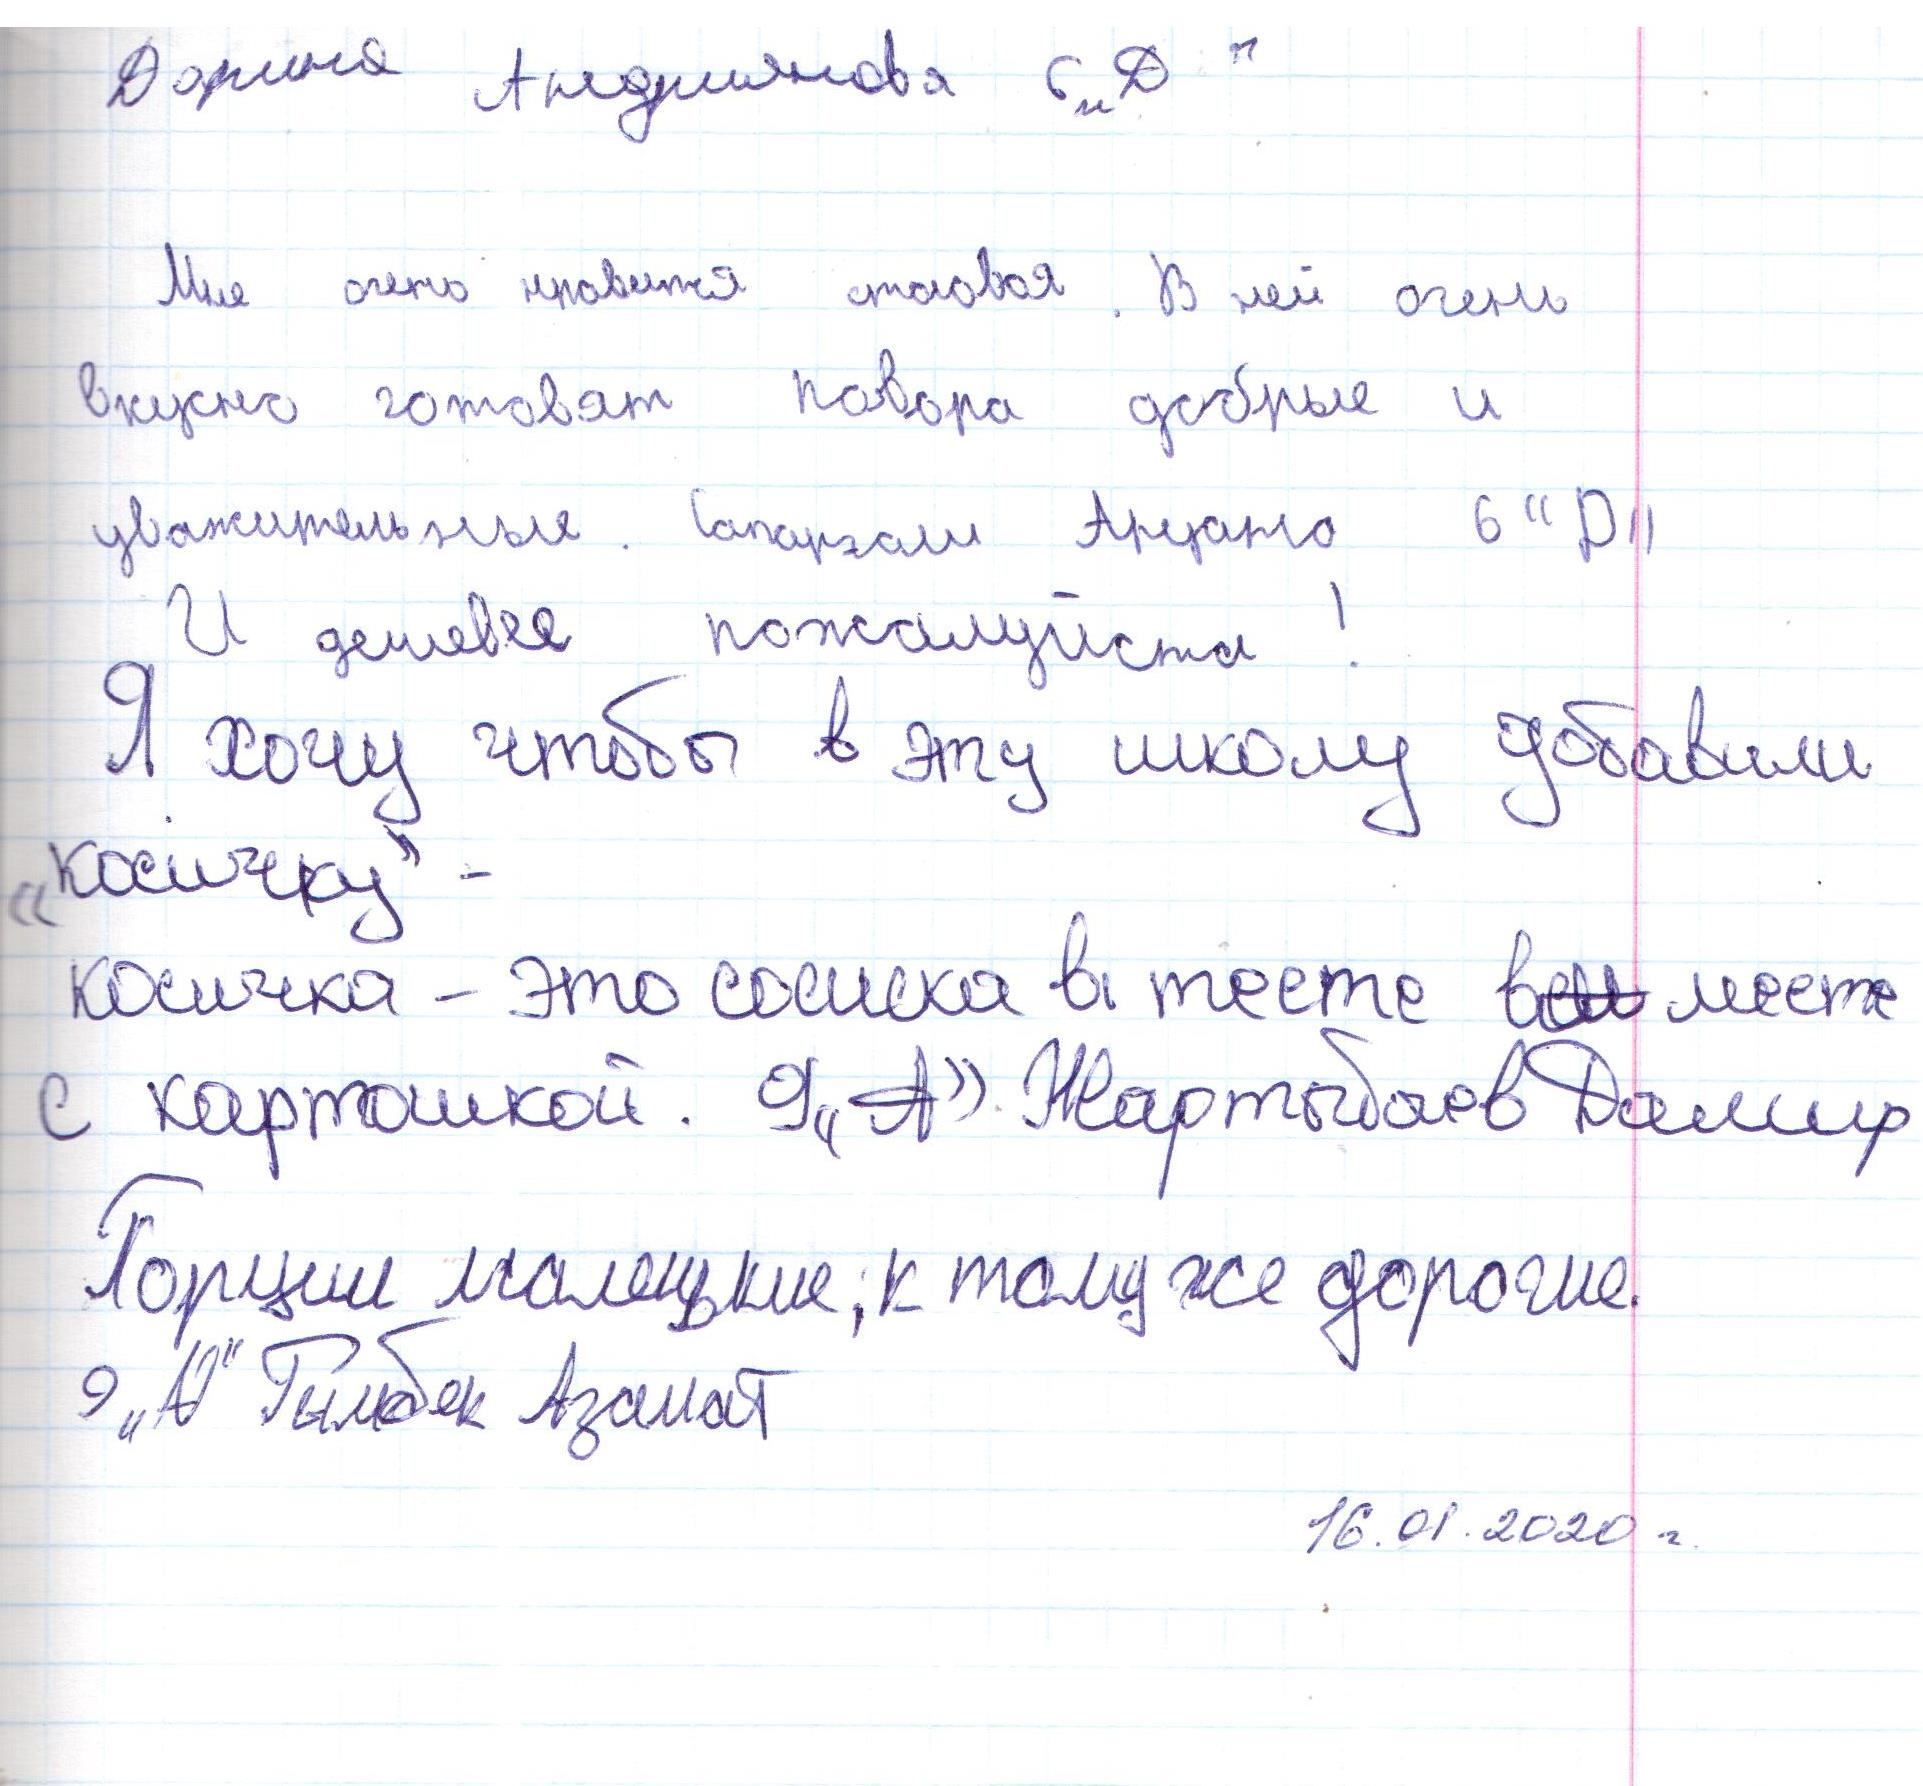 Дарина Андриянова 6 „Д"
Мне очень нравится столовая. В ней очень
вкусно готовят повора добрые и
уважительные. Сапаргали Аружан 6 "D"
И дешевле пожалуйста!
Я хочу чтобы в эту школу добавили
«косичку» -
косичка - это сосиска в тесте вместе
с картошкой. 9 „А" Жартыбаев Дамир
Порции маленькие, к тому же дорогие.
9 „А" Азамат
16.01.2020 г.